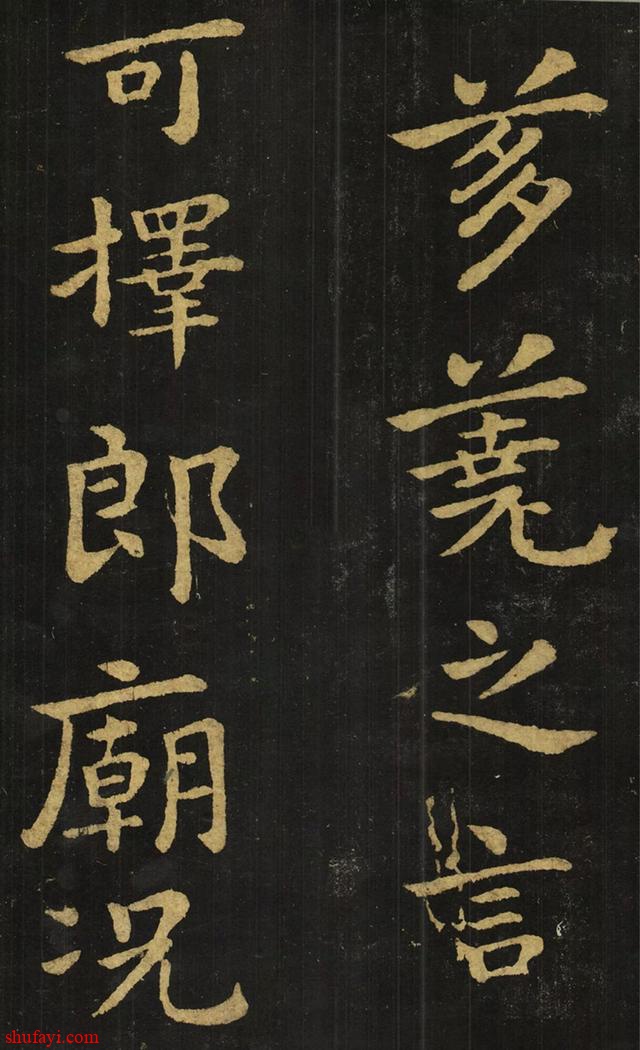 芻蕘之言
可擇郎廟況
shufayi.com